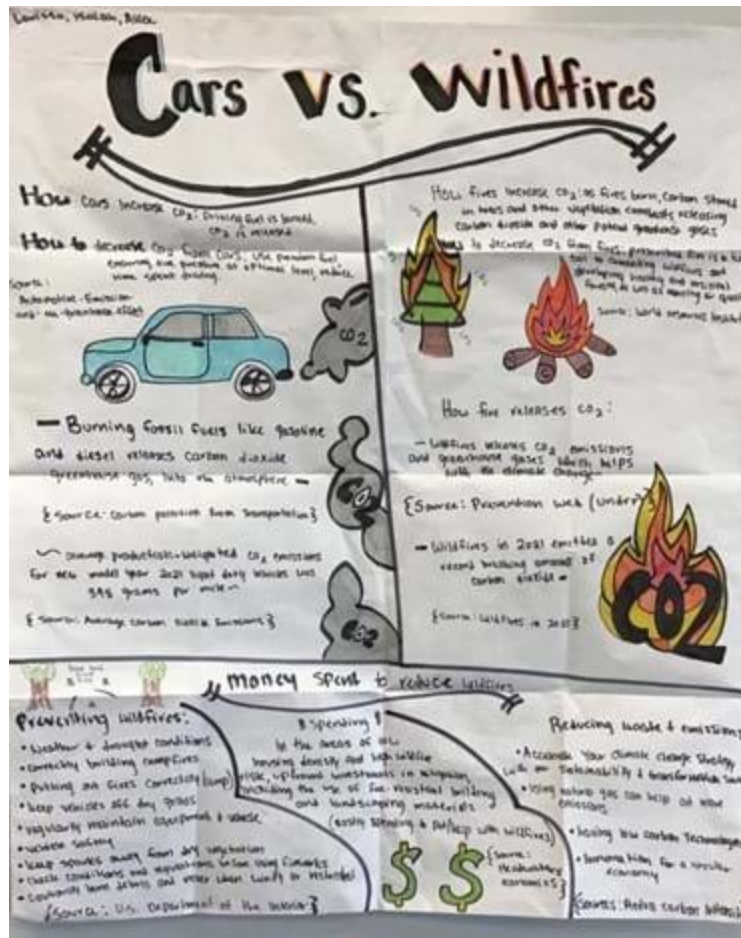 Cars vs. Wildfires
How cars increase CO2: Driving fuel is burned,
CO2 is released
How to decrease CO2 from cars: use premium fuel
ensuring tire pressure at optimal level, reduce
time spent driving.
Source:
Automotive-Emission
and greenhouse effect
CO2
— Burning fossil fuels like gasoline
and diesel releases carbon dioxide
greenhouse gas, into the atmosphere —
{Source: carbon pollution from transportation}
CO2
average production-weighted CO2 emissions
for new model year 2021 light duty vehicles was
348 grams per mile
{Source: Average carbon dioxide Emissions}
CO2
How fires increase CO2: as fires burn, carbon stored
in trees and other vegetation combusts releasing
carbon dioxide and other potent greenhouse gases
to decrease CO2 from fires: prescribed fire is a
tool to and
developing healthy and
Source: World resources
How fire releases CO2:
— Wildfires releases CO2 emissions
and greenhouse gases which helps
with the climate change —
{Source: Prevention web
— Wildfires in 2021 emitted a
record breaking amount of
carbon dioxide —
{Source: Wildfires in 2021}
CO2
money spent to reduce wildfires
Preventing wildfires:
• Weather & drought conditions
• correctly building campfires
• Putting out fires correctly
• keep vehicles off dry grass
• regularly maintain equipment & vehicle
• vehicle safety
• keep sparks away from dry vegetation
• check conditions and regulations before using fireworks
• cautiously burn debris and never when windy or restricted
{Source: U.S. Department of the interior}
$ Spending $
In the areas of
housing density and high wildfire
risk, upfront investments in mitigation,
including the use of fire-resistant building
and landscaping materials
{Source:
Headwaters
economics}
$ $
Reducing waste & emissions
• Accelerate your climate change strategy
with sustainability & transformation
• using natural gas can help at
emissions
• low carbon Technologies
• for a
economy
{Sources: carbon